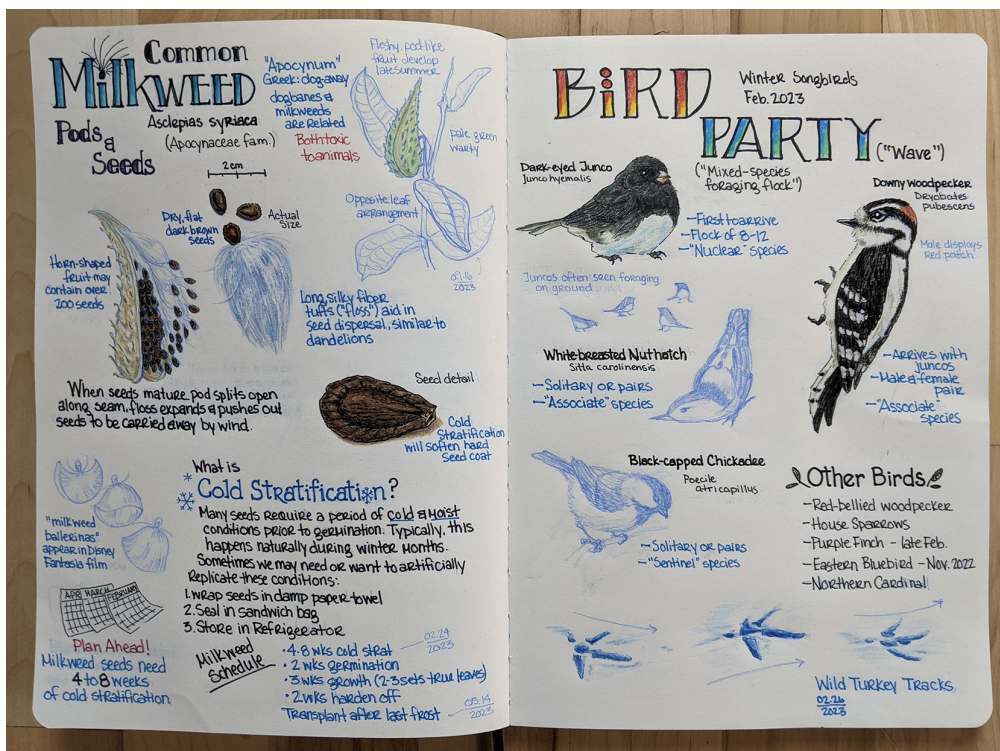 Common
Milkweed
Pods &
Seeds
Asclepias syriaca
(Apocynaceae fam.)
"Apocynum"
Greek: dog-away
dogbanes &
milkweeds
are related
Both toxic
to animals
Fleshy, pod-like
fruit develop
late summer
pale green
warty
Opposite leaf
arrangement
07.16
2023
2cm
Actual
Size
Dry, flat
dark brown
seeds
Horn-shaped
fruit may
contain over
200 seeds
Long, silky fiber
tufts ("floss") aid in
seed dispersal, similar to
dandelions
When seeds mature, pod splits open
along seam, floss expands & pushes out
seeds to be carried away by wind.
Seed detail
Cold
Stratification
will soften hard
seed coat
"milkweed
ballerinas"
appear in Disney
Fantasia film
What is
Cold Stratification?
Many seeds require a period of cold & moist
conditions prior to germination. Typically, this
happens naturally during winter months.
Sometimes we may need or want to artificially
Replicate these conditions:
1. wrap seeds in damp paper towel
2. Seal in sandwich bag
3. Store in Refrigerator
APR MARCH FEBRUARY
Plan Ahead!
Milkweed seeds need
4 to 8 weeks
of cold stratification
Milkweed
Schedule
• 4-8 wks cold strat
02.24
2023
• 2 wks germination
• 3 wks growth (2-3 sets true leaves)
• 2 wks harden off
Transplant after last frost
05.14
2023
BiRD
PARTY
("Wave")
Winter Songbirds
Feb. 2023
("Mixed-species
foraging flock")
Dark-eyed Junco
Junco hyemalis
- First to arrive
- Flock of 8-12
- "Nuclear" species
Juncos often seen foraging
on ground
Downy Woodpecker
Dryobates
pubescens
Male displays
Red patch
- Arrives with
juncos
- Male & female
pair
- "Associate"
species
White-breasted Nuthatch
Sitta carolinensis
- Solitary or pairs
- "Associate" species
Black-capped Chickadee
Poecile
atricapillus
- Solitary or pairs
- "Sentinel" species
Other Birds
- Red-bellied woodpecker
- House Sparrows
- Purple Finch - late Feb.
- Eastern Bluebird - Nov. 2022
- Northern Cardinal
Wild Turkey Tracks
02.26
2023